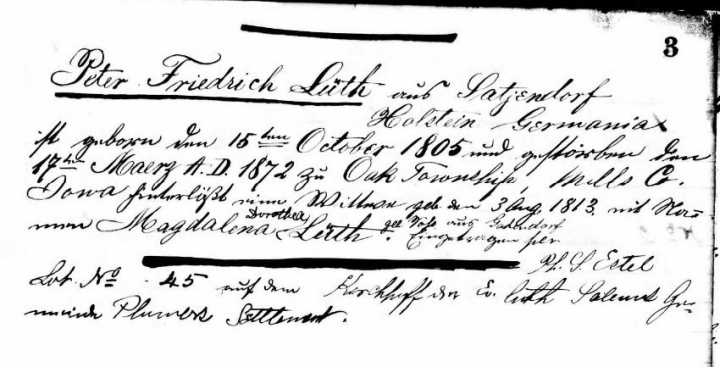 3
Peter Friedrich Lüth aus Satjendorf
Holstein Germania
ist geborn den 15ten October 1805 und gestorben den
17ten Maerz A.D. 1872 zu Oak Township, Mills Co.
Iowa hinterläßt eine Wittwe geb den 3 Aug. 1813, mit Na-
men Magdalena Dorothea Lüth geb aus
Eingetragen per
Ph. S. Estel
Lot. No. 45 auf dem Kirchhoff der Ev. luth Salems Ge-
meinde Plumers Settlement.